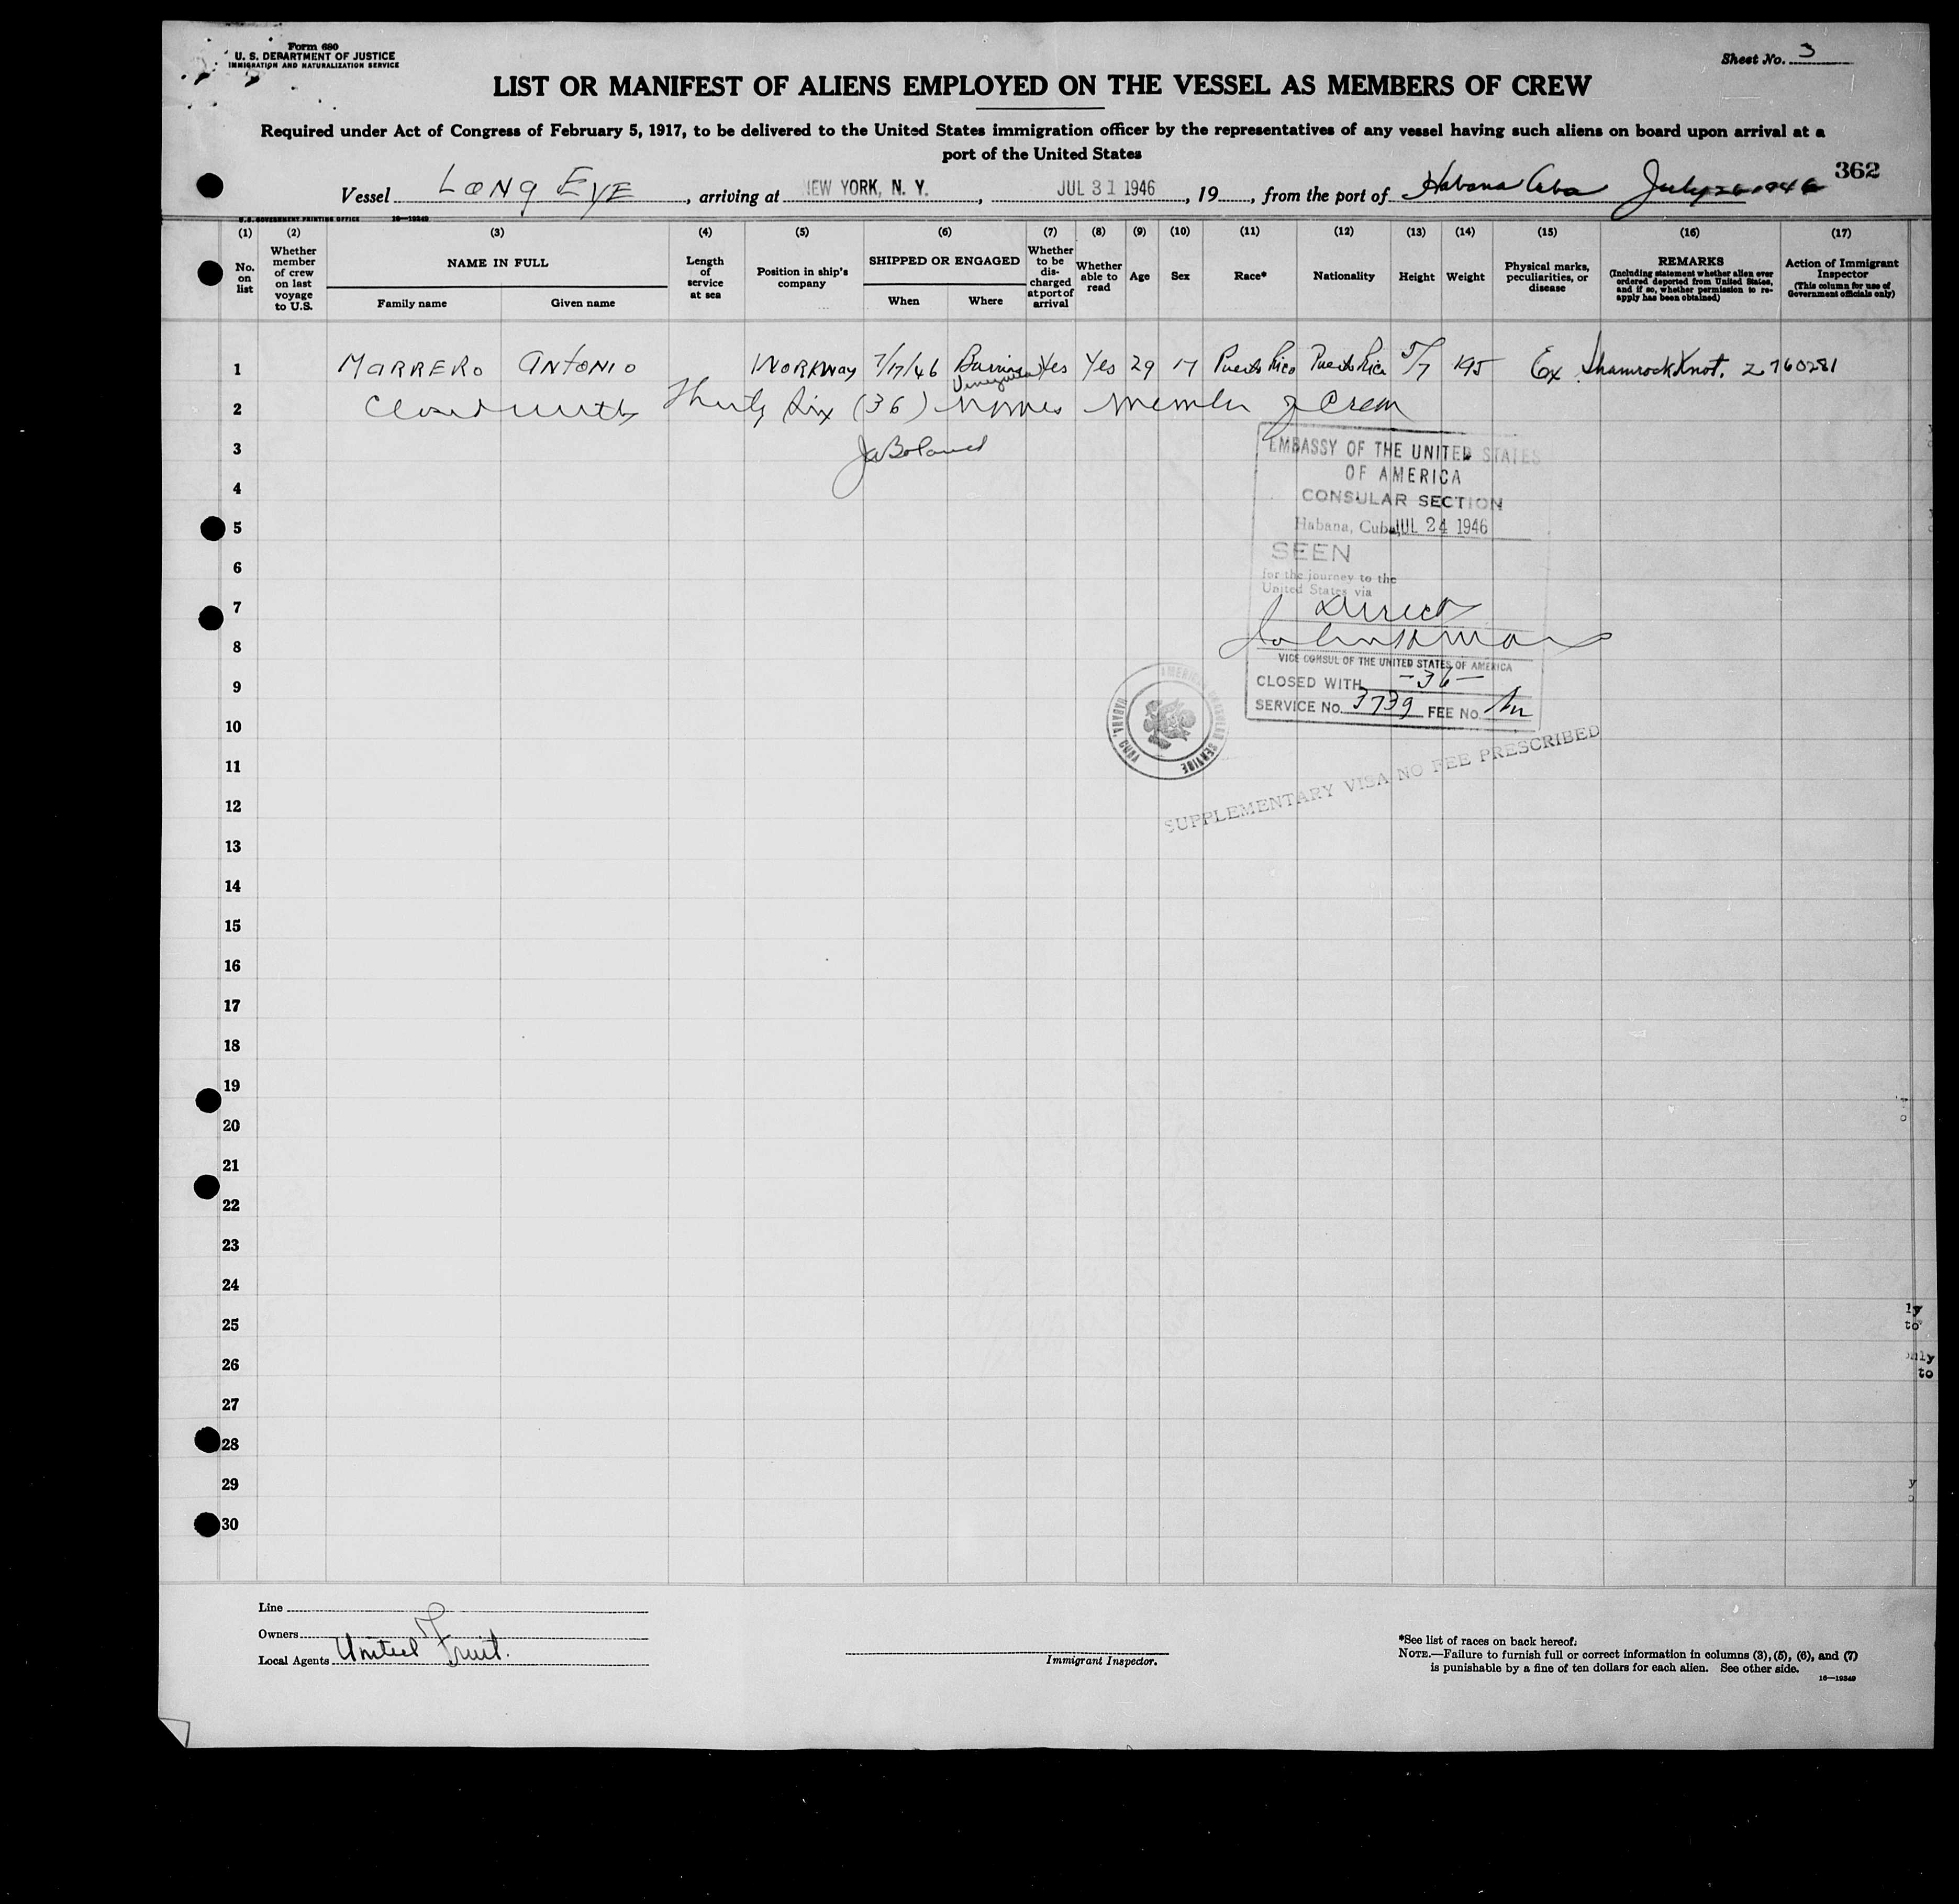 Form 680
U. S. DEPARTMENT OF JUSTICE
IMMIGRATION AND NATURALIZATION SERVICE
Sheet No. 3
LIST OR MANIFEST OF ALIENS EMPLOYED ON THE VESSEL AS MEMBERS OF CREW
Required under Act of Congress of February 5, 1917, to be delivered to the United States immigration officer by the representatives of any vessel having such aliens on board upon arrival at a
port of the United States
362
Vessel LONG EYE, arriving at NEW YORK, N. Y., JUL 31 1946, 19, from the port of Habana Cuba July 26 1946
U.S. GOVERNMENT PRINTING OFFICE 16—19340
(1) (2) (3) (4) (5) (6) (7) (8) (9) (10) (11) (12) (13) (14) (15) (16) (17)
No. on list
Whether member of crew on last voyage to U.S.
NAME IN FULL
Family name
Given name
Length of service at sea
Position in ship's company
SHIPPED OR ENGAGED
When
Where
Whether to be discharged at port of arrival
Whether able to read
Age
Sex
Race*
Nationality
Height
Weight
Physical marks, peculiarities, or disease
REMARKS
(Including statement whether alien ever ordered deported from United States, and if so, whether permission to re-apply has been obtained)
Action of Immigrant Inspector
(This column for use of Government officials only)
1 MARRERO ANTONIO WORKWAY 7/17/46 Yes Yes 29 M Puerto Rico Puerto Rico 5/7 195 Ex Shamrock Knot. Z 760281
Venezuela
2 Closed with Thirty Six (36) names member of Crew
3
4
5
6
7
8
9
10
11
12
13
14
15
16
17
18
19
20
21
22
23
24
25
26
27
28
29
30
EMBASSY OF THE UNITED STATES
OF AMERICA
CONSULAR SECTION
Habana, Cuba JUL 24 1946
SEEN
for the journey to the
United States via
Direct
VICE CONSUL OF THE UNITED STATES OF AMERICA
CLOSED WITH —36—
SERVICE No. 3739 FEE No.
AMERICAN CONSULAR SERVICE
HABANA, CUBA
SUPPLEMENTARY VISA NO FEE PRESCRIBED
ly
to
only
to
Line
Owners
Local Agents United Fruit.
Immigrant Inspector.
*See list of races on back hereof.
NOTE.—Failure to furnish full or correct information in columns (3), (5), (6), and (7)
is punishable by a fine of ten dollars for each alien. See other side.
16—19340